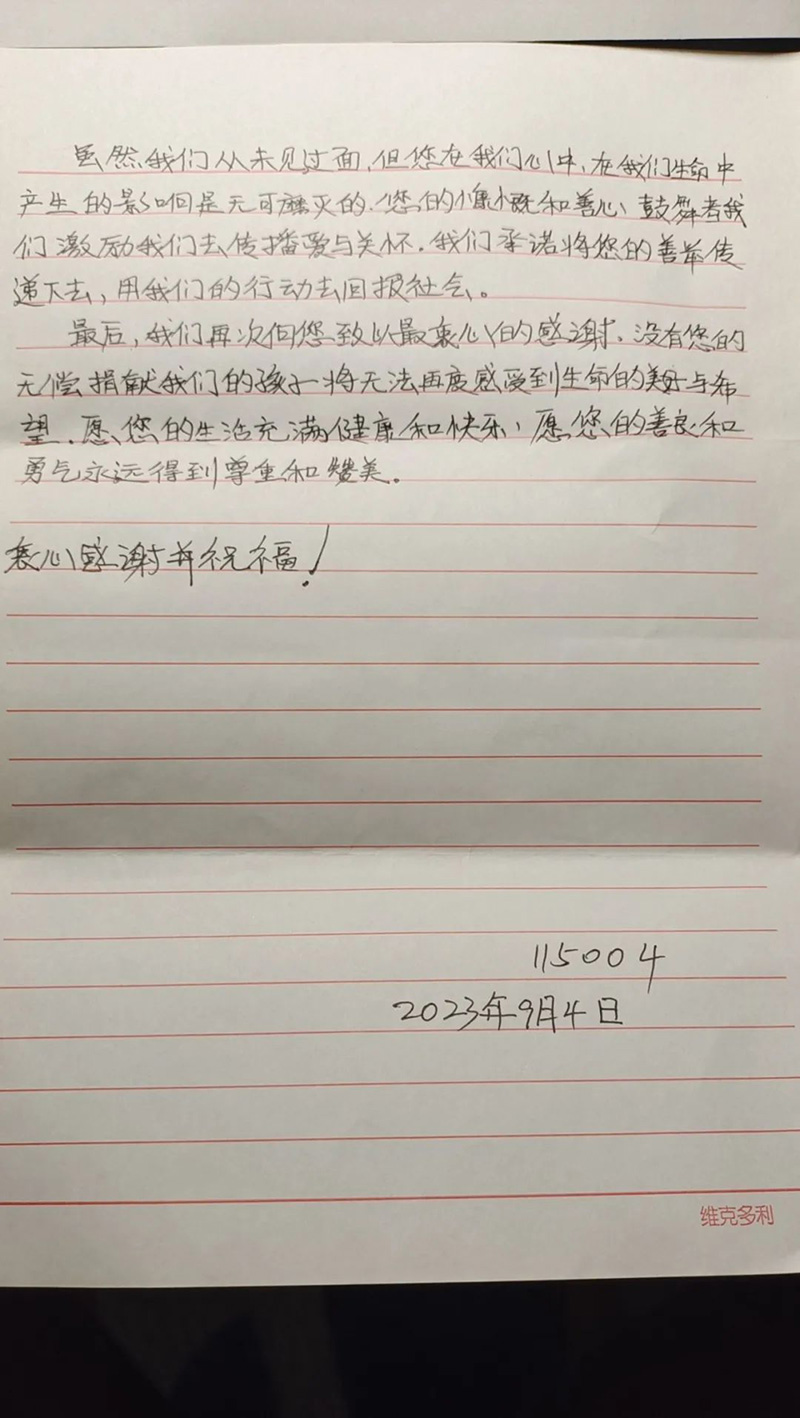 虽然我们从未见过面,但您在我们心中,在我们生命中
产生的影响是无可磨灭的.您的慷慨和善心鼓舞着我
们激励我们去传播爱与关怀.我们承诺将您的善举传
递下去,用我们的行动去回报社会。
最后,我们再次向您致以最衷心的感谢.没有您的
无偿捐献我们的孩子将无法再度感受到生命的美好与希
望.愿您的生活充满健康和快乐,愿您的善良和
勇气永远得到尊重和赞美.
衷心感谢并祝福!
115004
2023年9月4日
维克多利